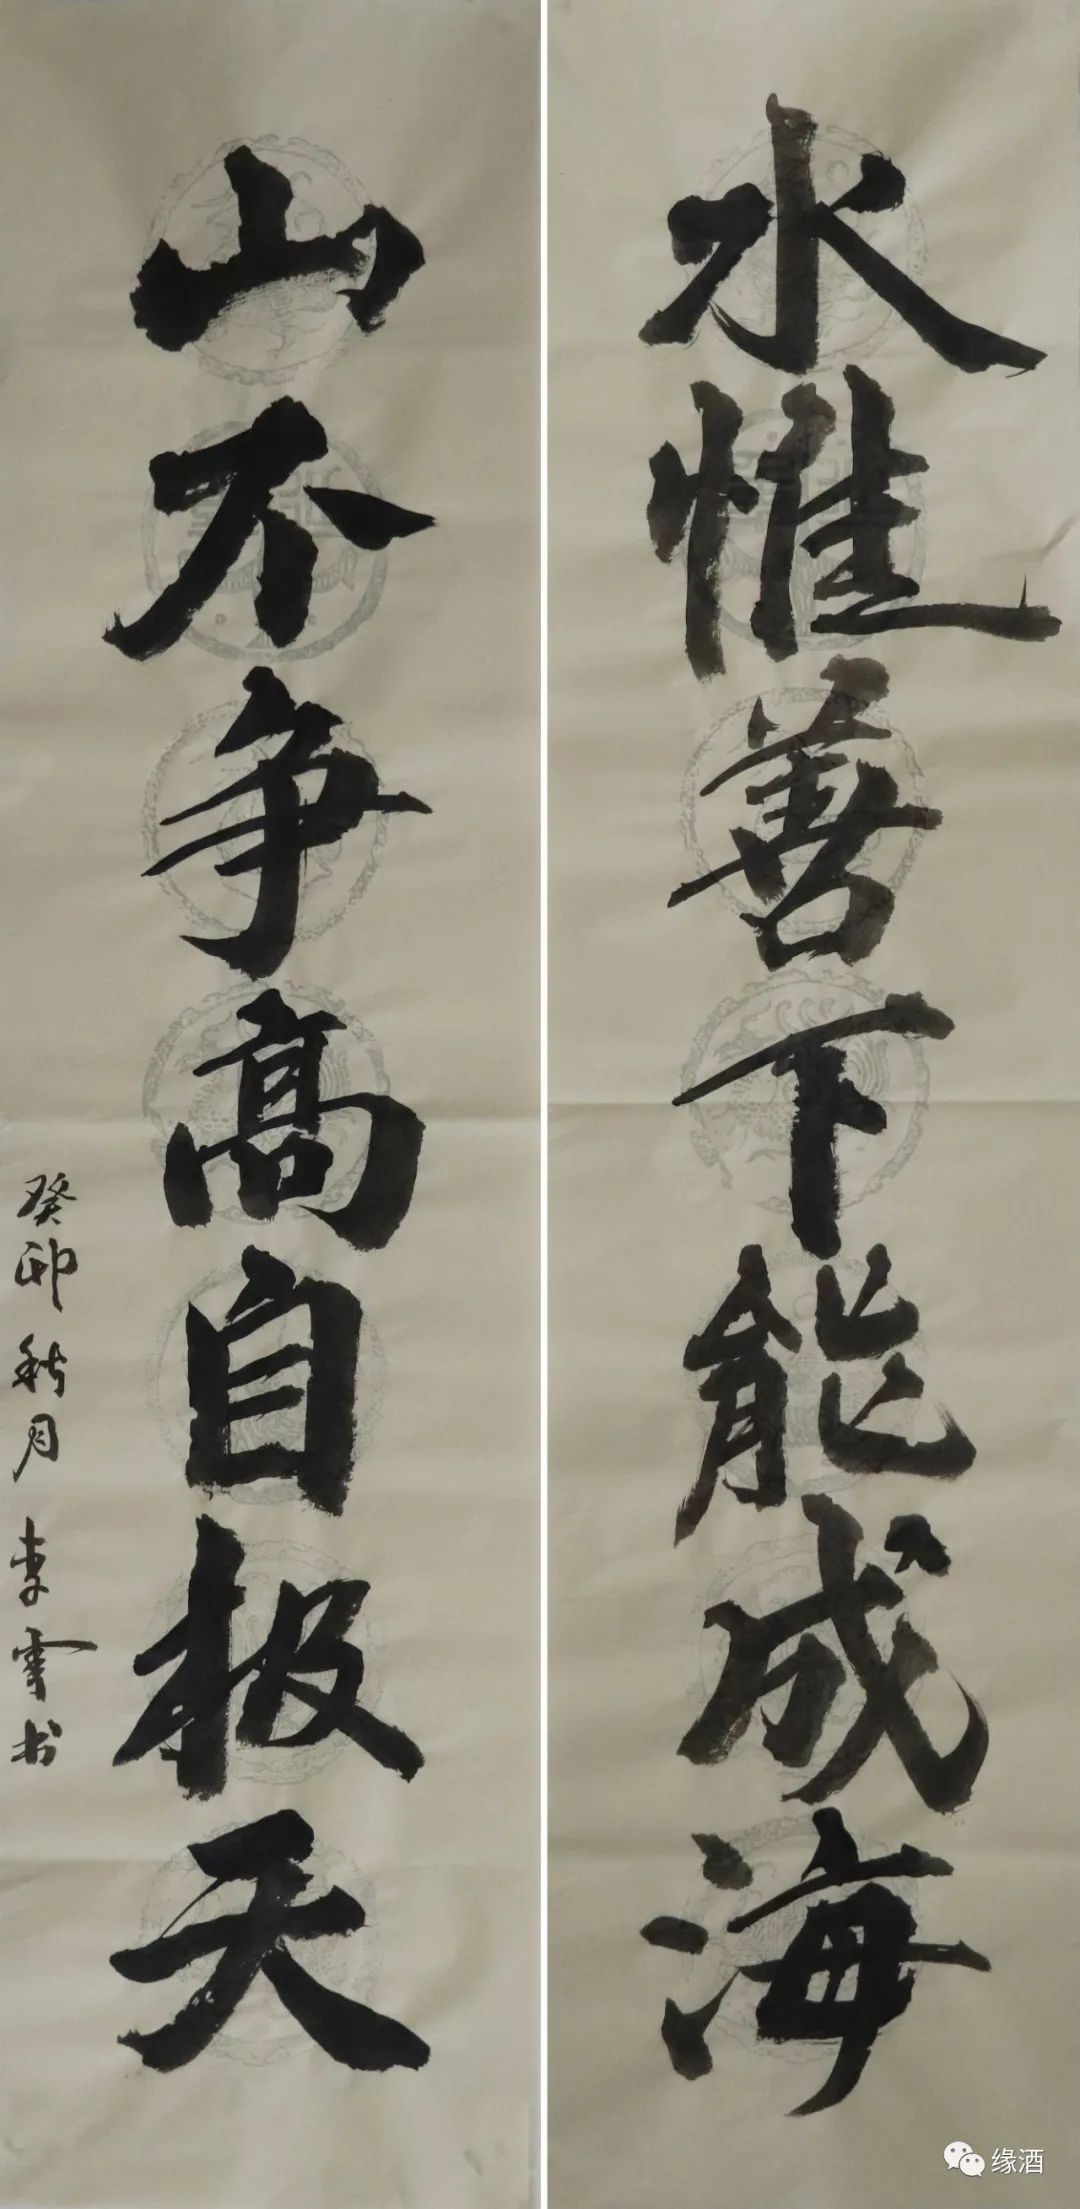 水惟善下能成海
山不争高自极天
癸卯秋月李雪书
缘酒